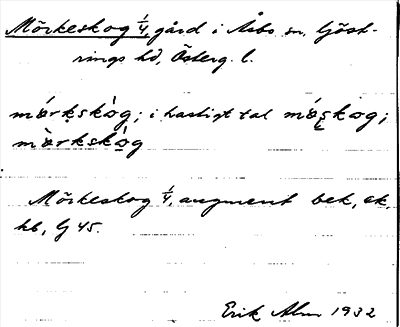 Mörkeskog 1/4, gård i Åsbo sn, Göst-
rings hd, Österg. l.
mórkskòg; i hastigt tal
mòrkskòg
Mörkeskog 1/4, augment bek, ek,
kb, G 45.
Erik Alm 1932